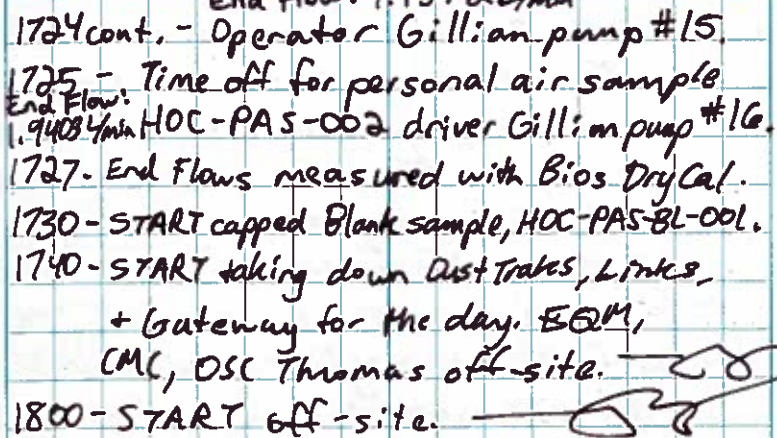 1724 cont. - Operator Gillian pump #15.
1725 - Time off for personal air sample
End Flow:
1.9408 L/min HOC-PAS-002 driver Gillian pump #16.
1727 - End Flows measured with Bios DryCal.
1730 - START capped Blank sample, HOC-PAS-BL-001.
1740 - START taking down DustTraks, Links,
+ Gateway for the day. EQM,
CMC, OSC Thomas off-site.
1800 - START off-site.